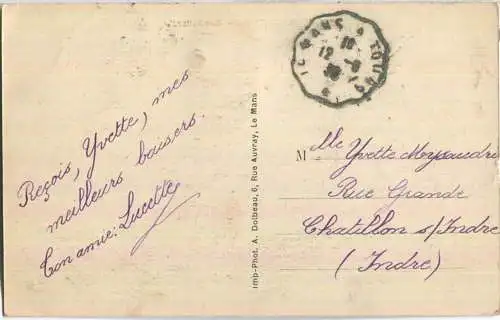 Reçois, Yvette, mes
meilleurs baisers.
Ton amie: Lucette
Imp-Phot. A. Dolbeau, 6, Rue Auvray, Le Mans
LE MANS A TOURS
18
12 -8
38
Mlle Yvette Meysaudre
Rue Grande
Chatillon s/Indre
(Indre)